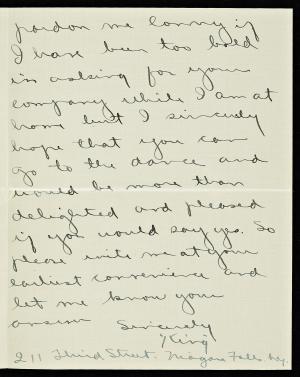 pardon me Conny if
I have been too bold
in asking for your
company while I am at
home but I sincerely
hope that you can
go to the dance and
would be more than
delighted and pleased
if you would say yes. So
please write me at your
earliest convenience and
let me know your
answer Sincerely
King
211 Third Street. Niagara Falls. Ny.